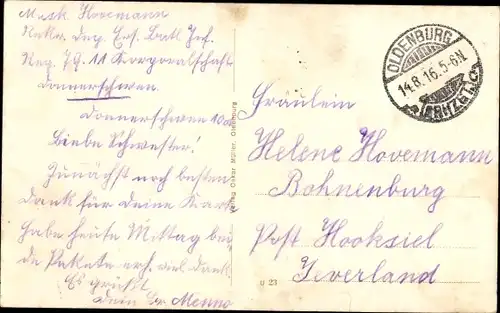 Musk. Hovemann
Rekr. Dep. Ers. Batl. Inf.
Reg. 79. 11 Korporalschaft
Donnerschwee
Donnerschwee
Liebe Schwester!
Zunächst noch besten
Dank für deine Karte
habe heute Mittag bei
de Pakete erh. viel Dank
Es grüßt
Dein Br. Menno
Verlag Oskar Müller, Oldenburg
OLDENBURG
14.8.16.5-6N
(GRHZGT.)
Fräulein
Helene Hovemann
Bohnenburg
Post Hooksiel
Jeverland
U 23